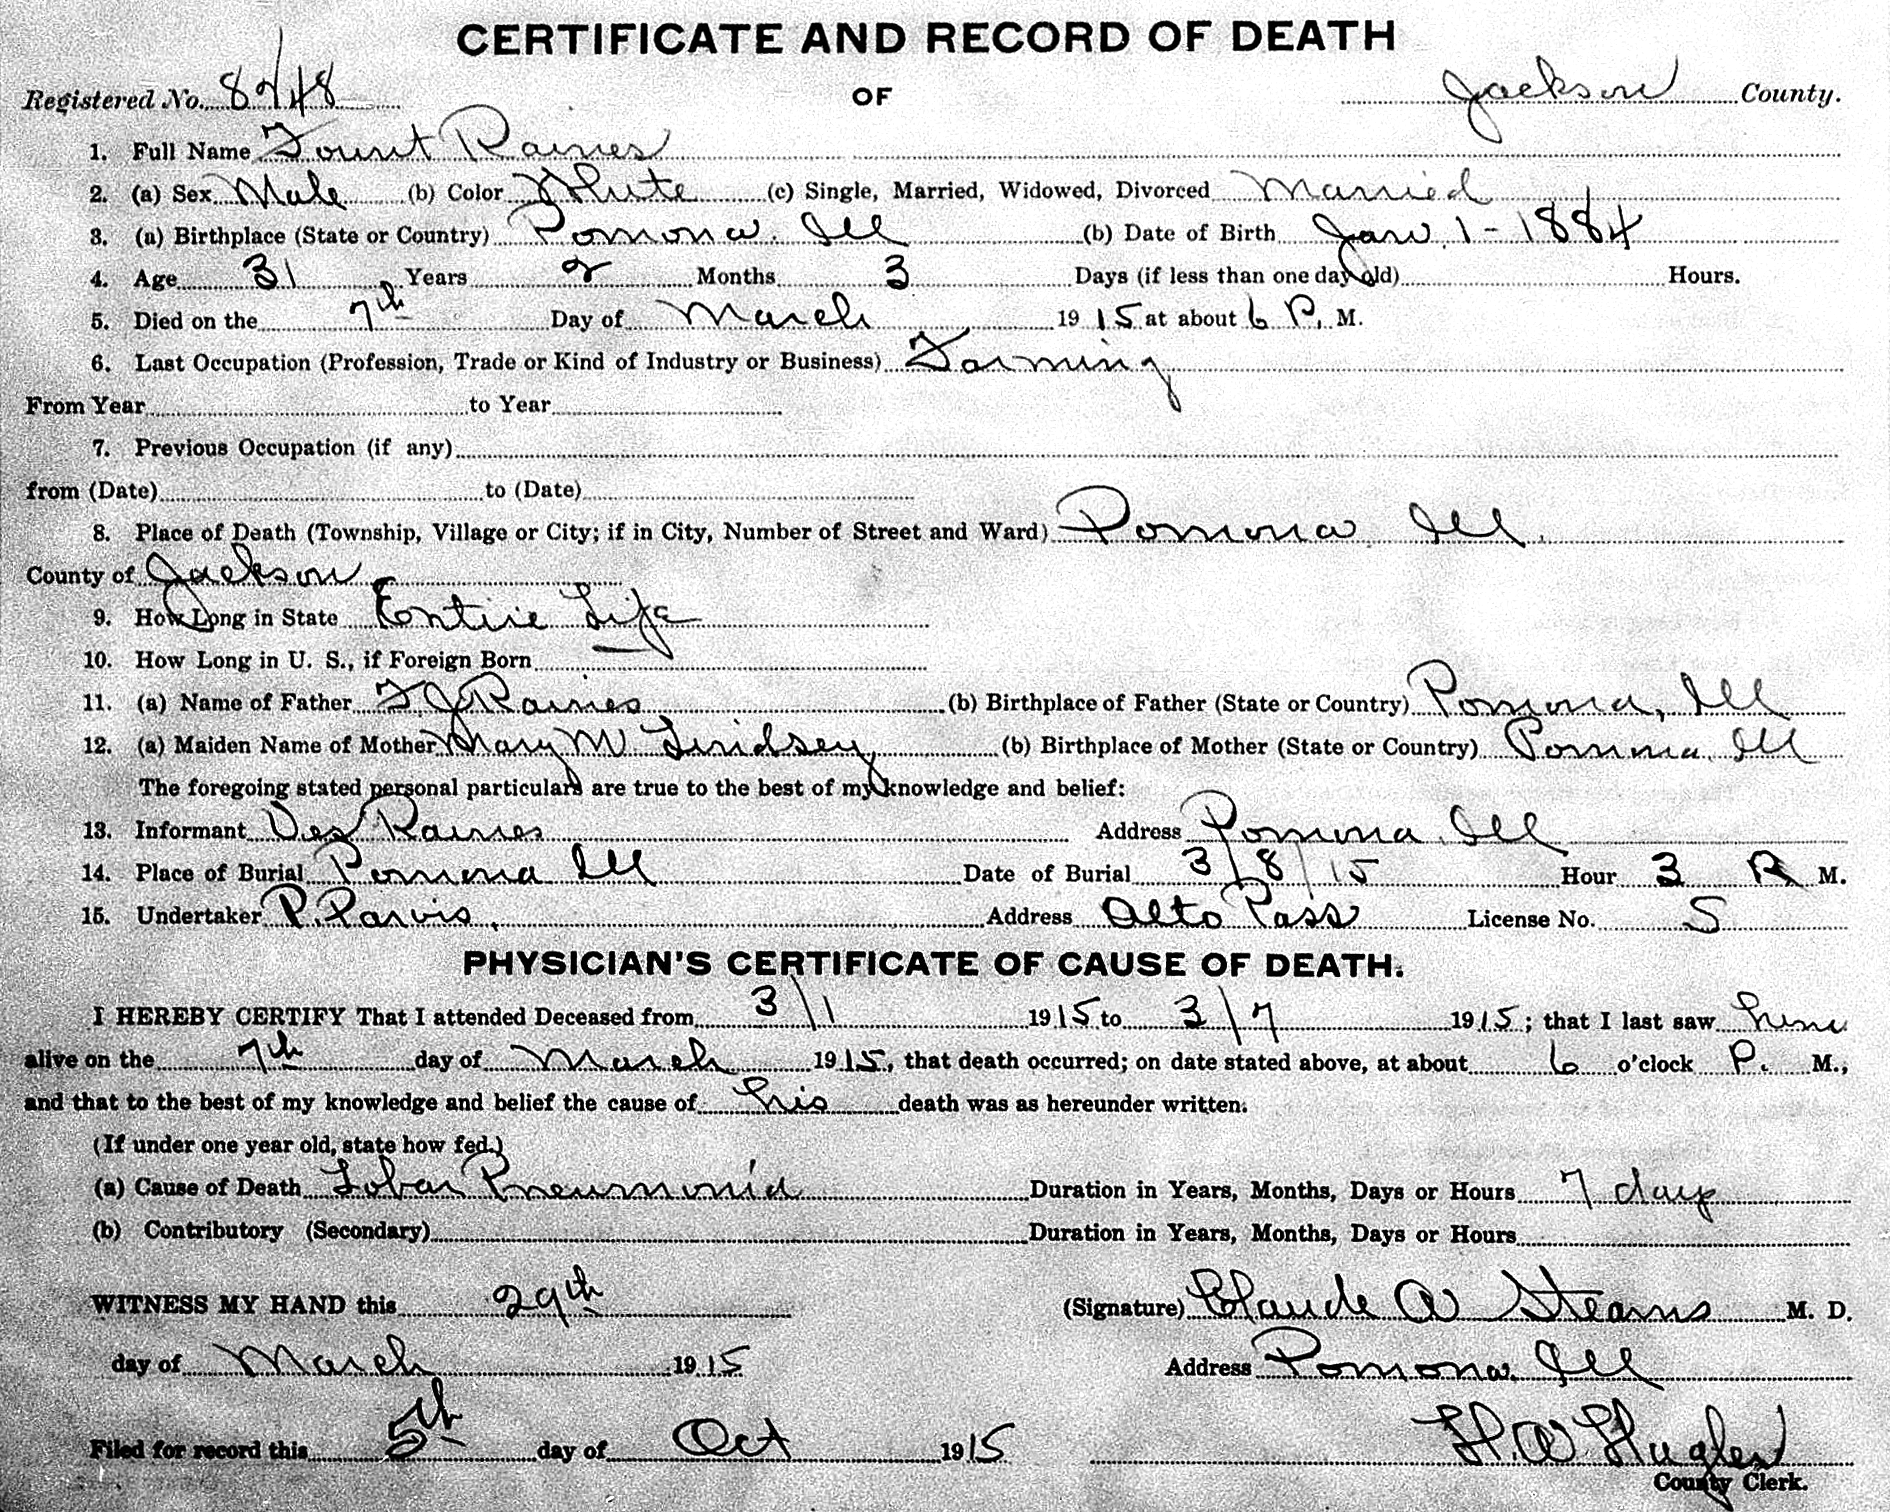 CERTIFICATE AND RECORD OF DEATH
Registered No. 8248 OF Jackson County.
1. Full Name Fount Raines
2. (a) Sex Male (b) Color White (c) Single, Married, Widowed, Divorced Married
3. (a) Birthplace (State or Country) Pomona. Ill (b) Date of Birth Jan. 1 - 1884
4. Age 31 Years 2 Months 3 Days (if less than one day old) Hours.
5. Died on the 7th Day of March 1915 at about 6 P. M.
6. Last Occupation (Profession, Trade or Kind of Industry or Business) Farming
From Year to Year
7. Previous Occupation (if any)
from (Date) to (Date)
8. Place of Death (Township, Village or City; if in City, Number of Street and Ward) Pomona. Ill.
County of Jackson
9. How Long in State Entire Life
10. How Long in U. S., if Foreign Born
11. (a) Name of Father F. J. Raines (b) Birthplace of Father (State or Country) Pomona, Ill
12. (a) Maiden Name of Mother Mary M Lindsey (b) Birthplace of Mother (State or Country) Pomona. Ill
The foregoing stated personal particulars are true to the best of my knowledge and belief:
13. Informant Raines Address Pomona. Ill
14. Place of Burial Pomona Ill Date of Burial 3/8/15 Hour 3 P. M.
15. Undertaker P. Parvis. Address Alto Pass License No. 5
PHYSICIAN'S CERTIFICATE OF CAUSE OF DEATH.
I HEREBY CERTIFY That I attended Deceased from 3/1 1915 to 3/7 1915; that I last saw him
alive on the 7th day of March 1915, that death occurred; on date stated above, at about 6 o'clock P. M.,
and that to the best of my knowledge and belief the cause of his death was as hereunder written.
(If under one year old, state how fed.)
(a) Cause of Death Lobar Pneumonia Duration in Years, Months, Days or Hours 7 days
(b) Contributory (Secondary) Duration in Years, Months, Days or Hours
WITNESS MY HAND this 29th (Signature) Claude A Stearns M. D.
day of March 1915 Address Pomona. Ill
Filed for record this 5th day of Oct 1915 H. A Hugles
County Clerk.